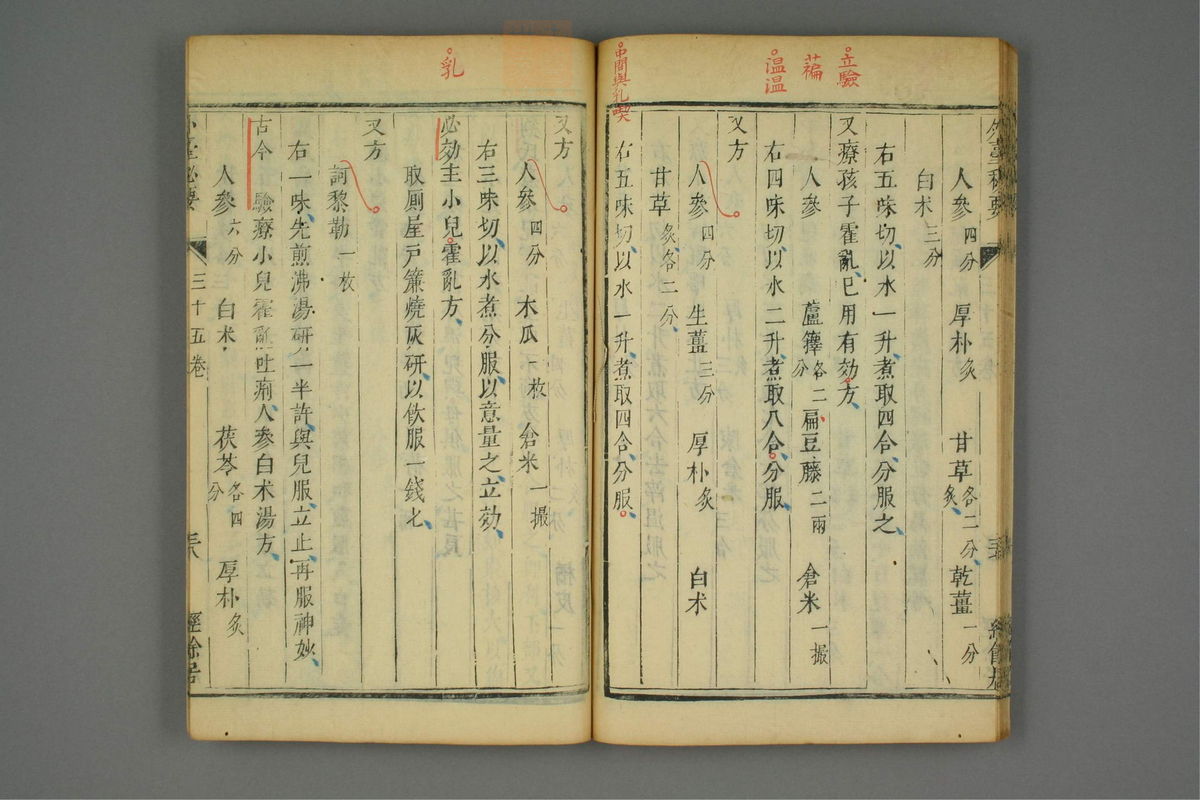 立驗
藊
温温
中間與乳喫
外臺秘要
人參四分 厚朴炙 甘草各二分炙 乾薑一分
白术三分
右五味切以水一升煮取四合分服之
又療孩子霍亂已用有効方
人參 蘆籜各二分 扁豆藤二兩 倉米一撮
右四味切以水二升煮取八合分服
又方
人參四分 生薑三分 厚朴炙 白术
甘草炙各二分
右五味切以水一升煮取四合分服
乳
又方
人參四分 木瓜一枚 倉米一撮
右三味切以水煮分服以意量之立効
必効主小兒霍亂方
取厠屋戸簾燒灰研以飲服一錢匕
又方
訶黎勒一枚
右一味先煎沸湯研一半許與兒服立止再服神妙
古今 驗療小兒霍亂吐痢人參白术湯方
人參六分 白术 茯苓各四分 厚朴炙
外臺秘要 三十五卷 三八 經餘居